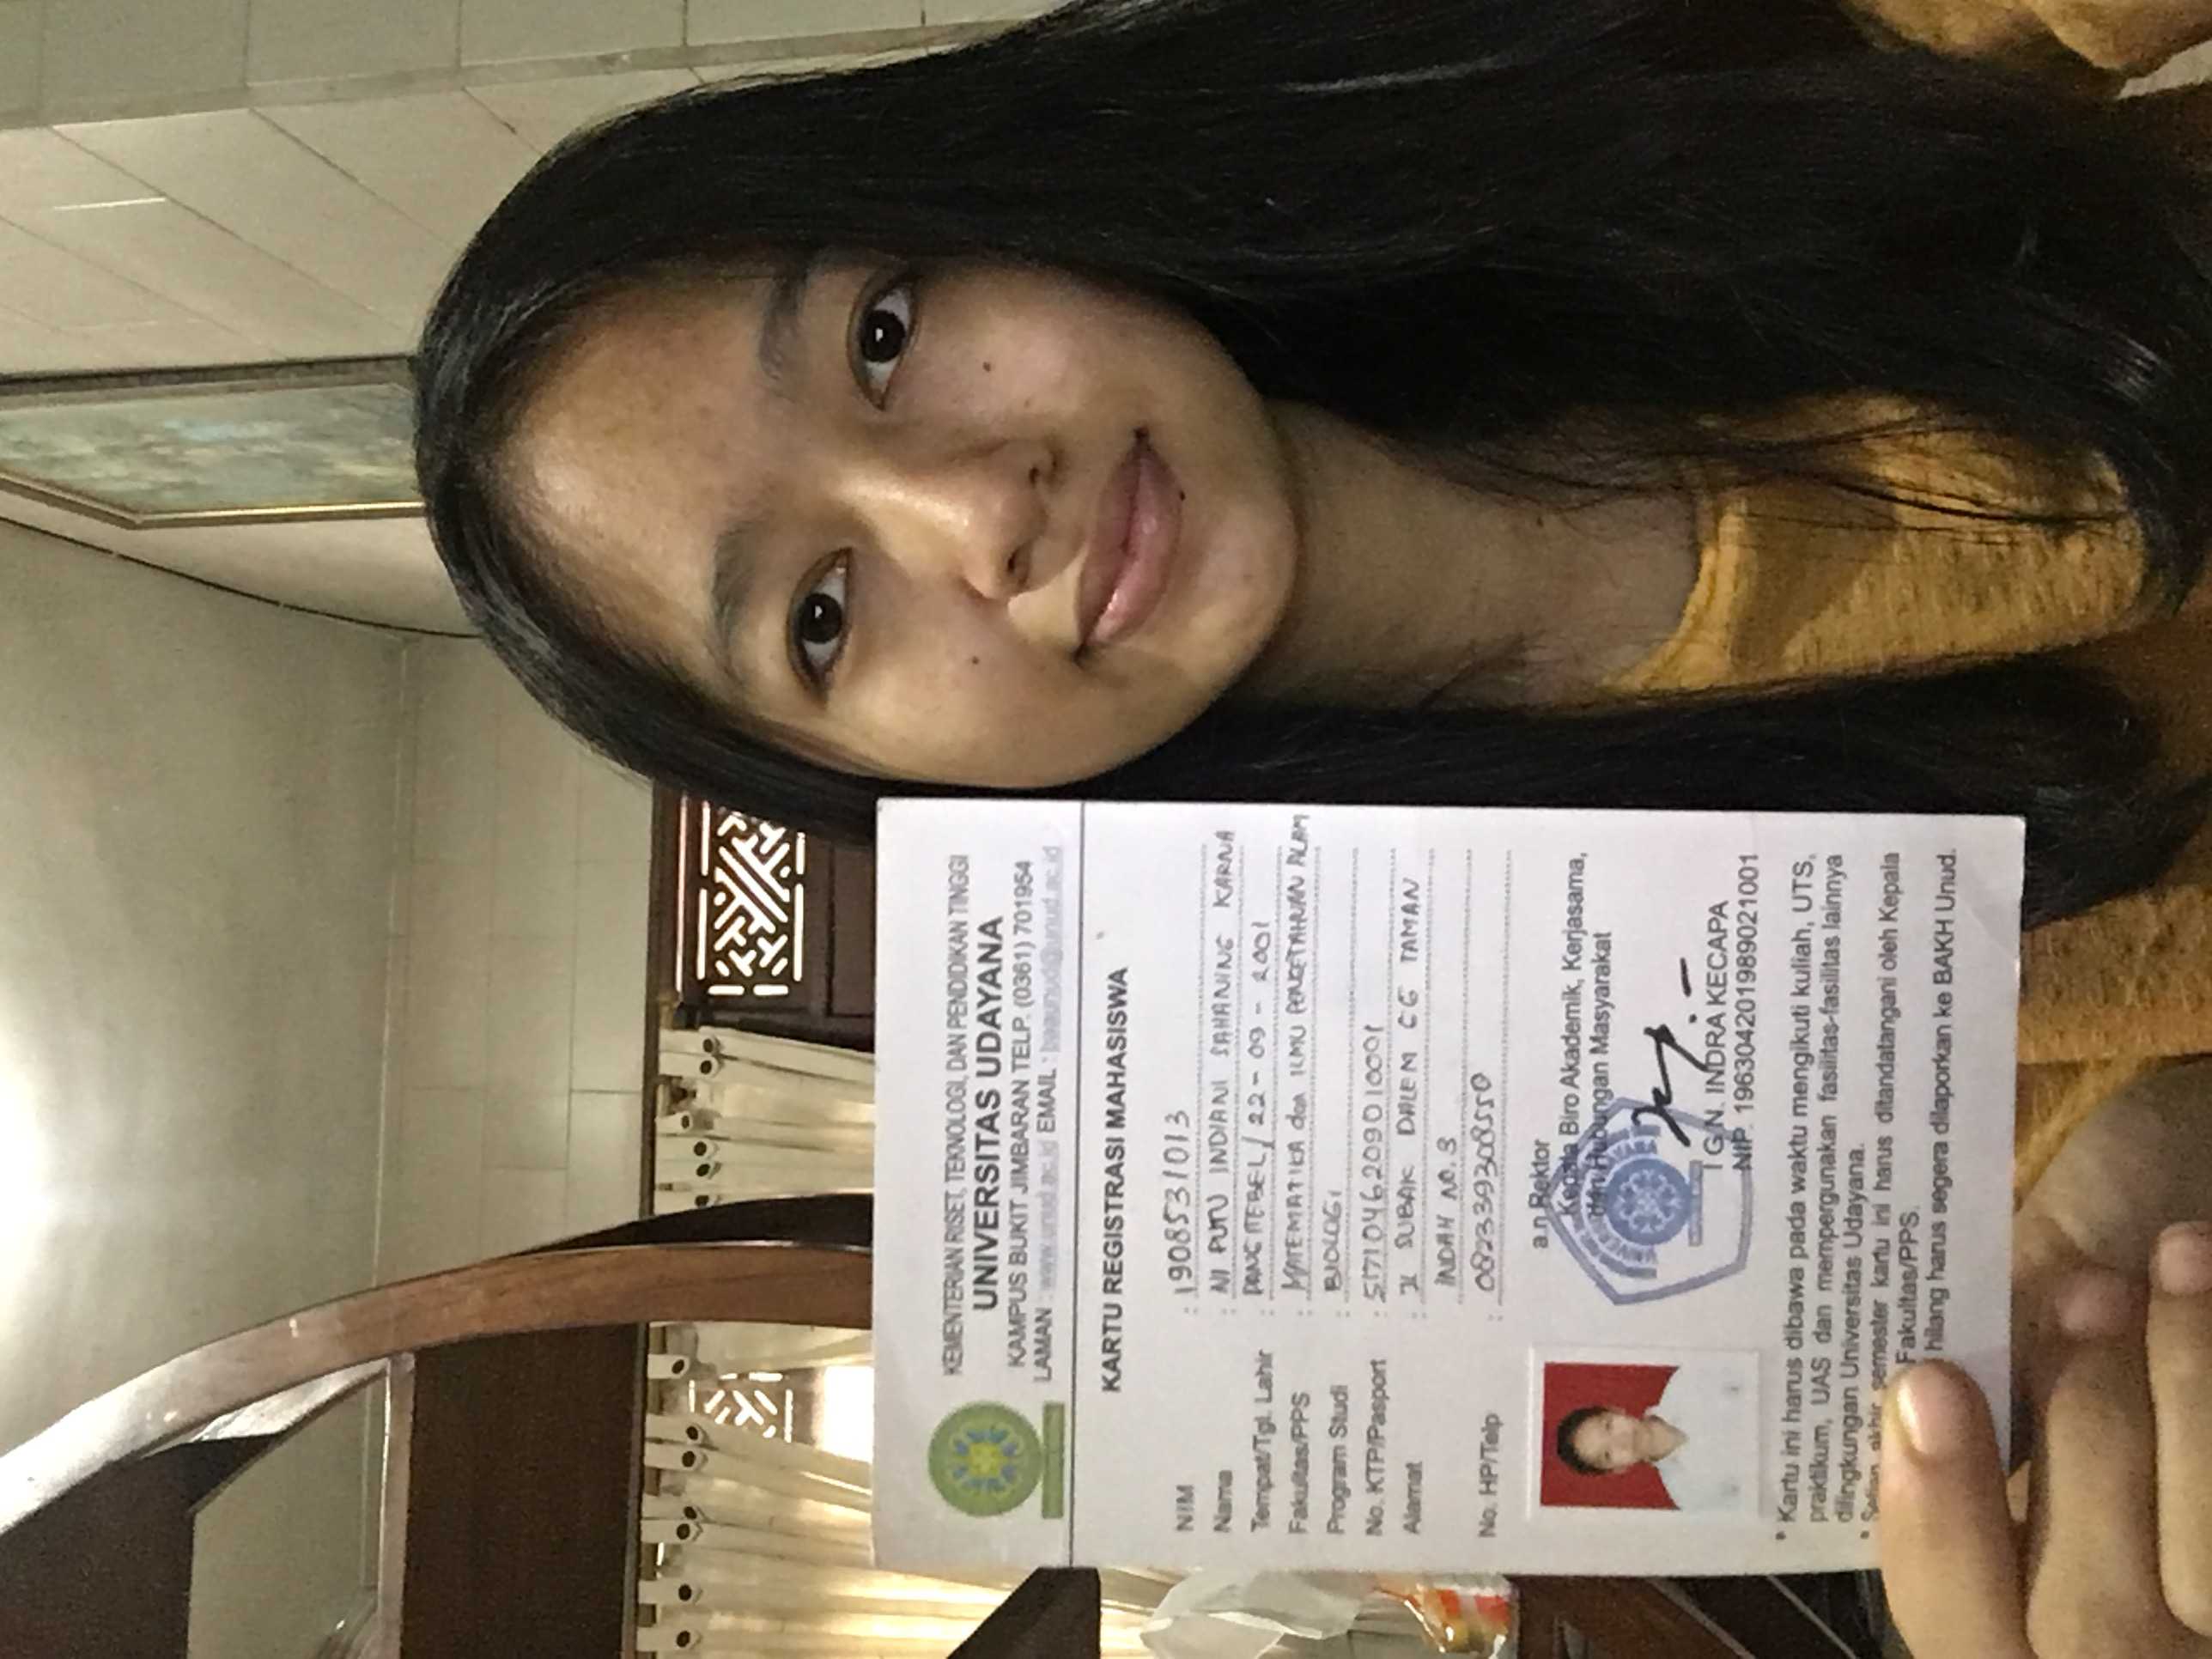 KEMENTERIAN RISET, TEKNOLOGI, DAN PENDIDIKAN TINGGI
UNIVERSITAS UDAYANA
KAMPUS BUKIT JIMBARAN TELP. (0361) 701954
LAMAN : www.unud.ac.id EMAIL :
KARTU REGISTRASI MAHASISWA
NIM : 1908531013
Nama : NI PUTU INDIANI SAHANING KARNA
Tempat/Tgl. Lahir : / 22-09-2001
Fakultas/PPS : MATEMATIKA dan ILMU PENGETAHUAN ALAM
Program Studi : BIOLOGI
No. KTP/Pasport : 5171046209010001
Alamat : Jl SUBAK DALEM GG TAMAN
INDAH NO. 3
No. HP/Telp : 082339308550
a.n Rektor
Kepala Biro Akademik, Kerjasama,
dan Hubungan Masyarakat
I G.N. INDRA KECAPA
NIP. 196304201989021001
* Kartu ini harus dibawa pada waktu mengikuti kuliah, UTS,
praktikum, UAS dan mempergunakan fasilitas-fasilitas lainnya
dilingkungan Universitas Udayana.
* Setiap akhir semester kartu ini harus ditandatangani oleh Kepala
Fakultas/PPS.
hilang harus segera dilaporkan ke BAKH Unud.